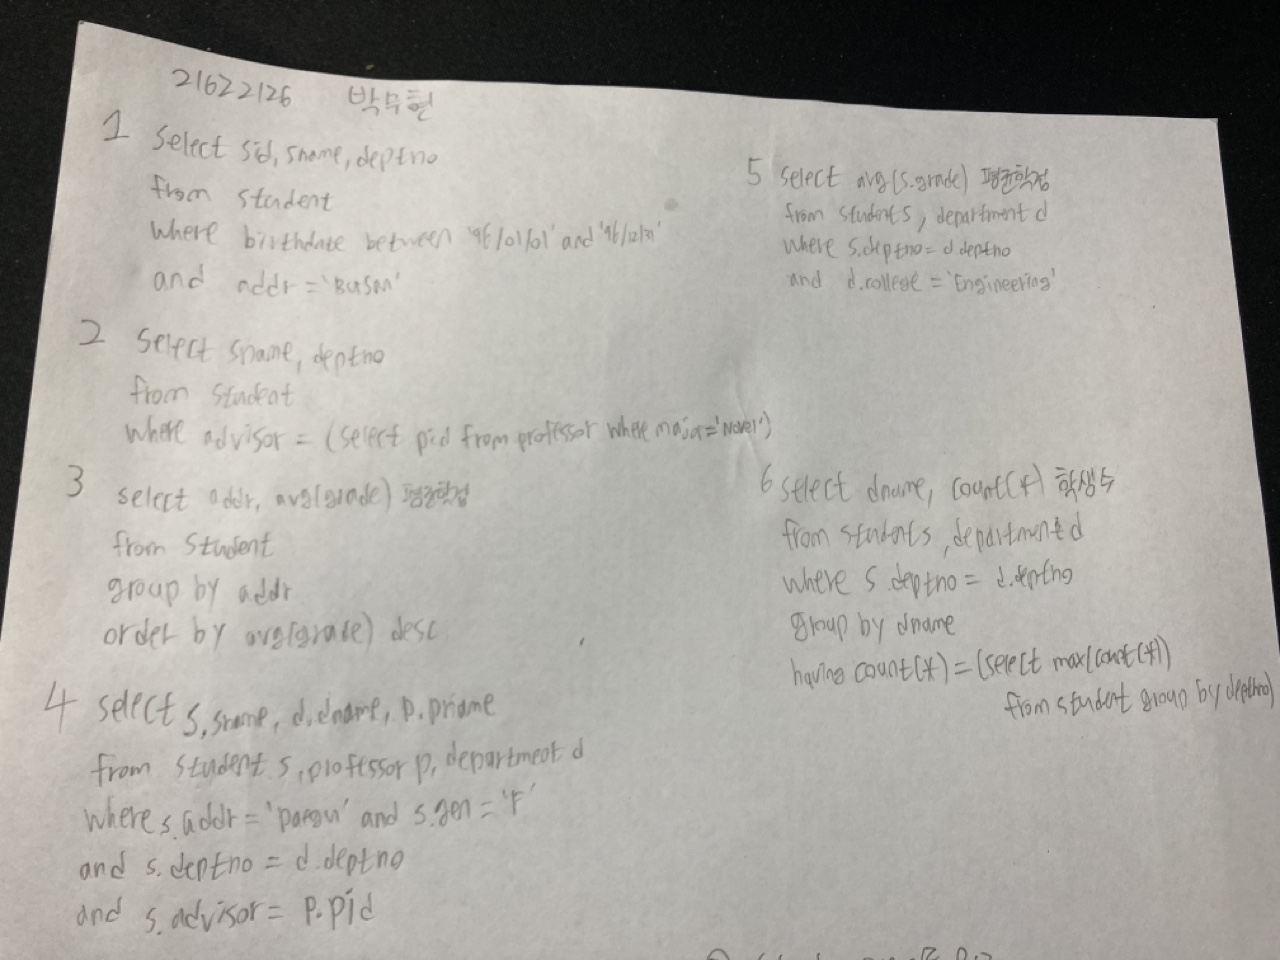 21622126 박무현
1 select sid, sname, deptno
from student
where birthdate between '96/01/01' and '96/12/31'
and addr = 'Busan'
2 select sname, deptno
from student
where advisor = (select pid from professor where major='Novel')
3 select addr, avg(grade) 평균학점
from student
group by addr
order by avg(grade) desc
4 select s.sname, d.dname, p.pname
from student s, professor p, department d
where s.addr = 'Daegu' and s.gen = 'F'
and s.deptno = d.deptno
and s.advisor = p.pid
5 select avg(s.grade) 평균학점
from student s, department d
where s.deptno = d.deptno
and d.college = 'Engineering'
6 select dname, count(*) 학생수
from student s, department d
where s.deptno = d.deptno
group by dname
having count(*) = (select max(count(*))
from student group by deptno)